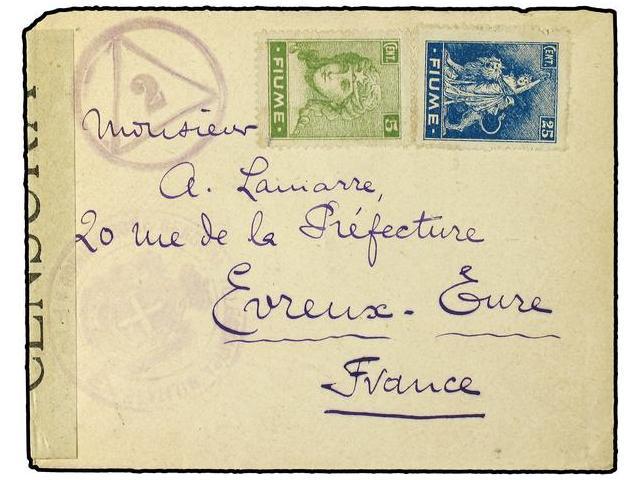 CENSURA
2
CENT.
FIUME
5
CENT.
FIUME
25
Monsieur
A. Lamarre,
20 rue de la Préfecture
Evreux - Eure
France